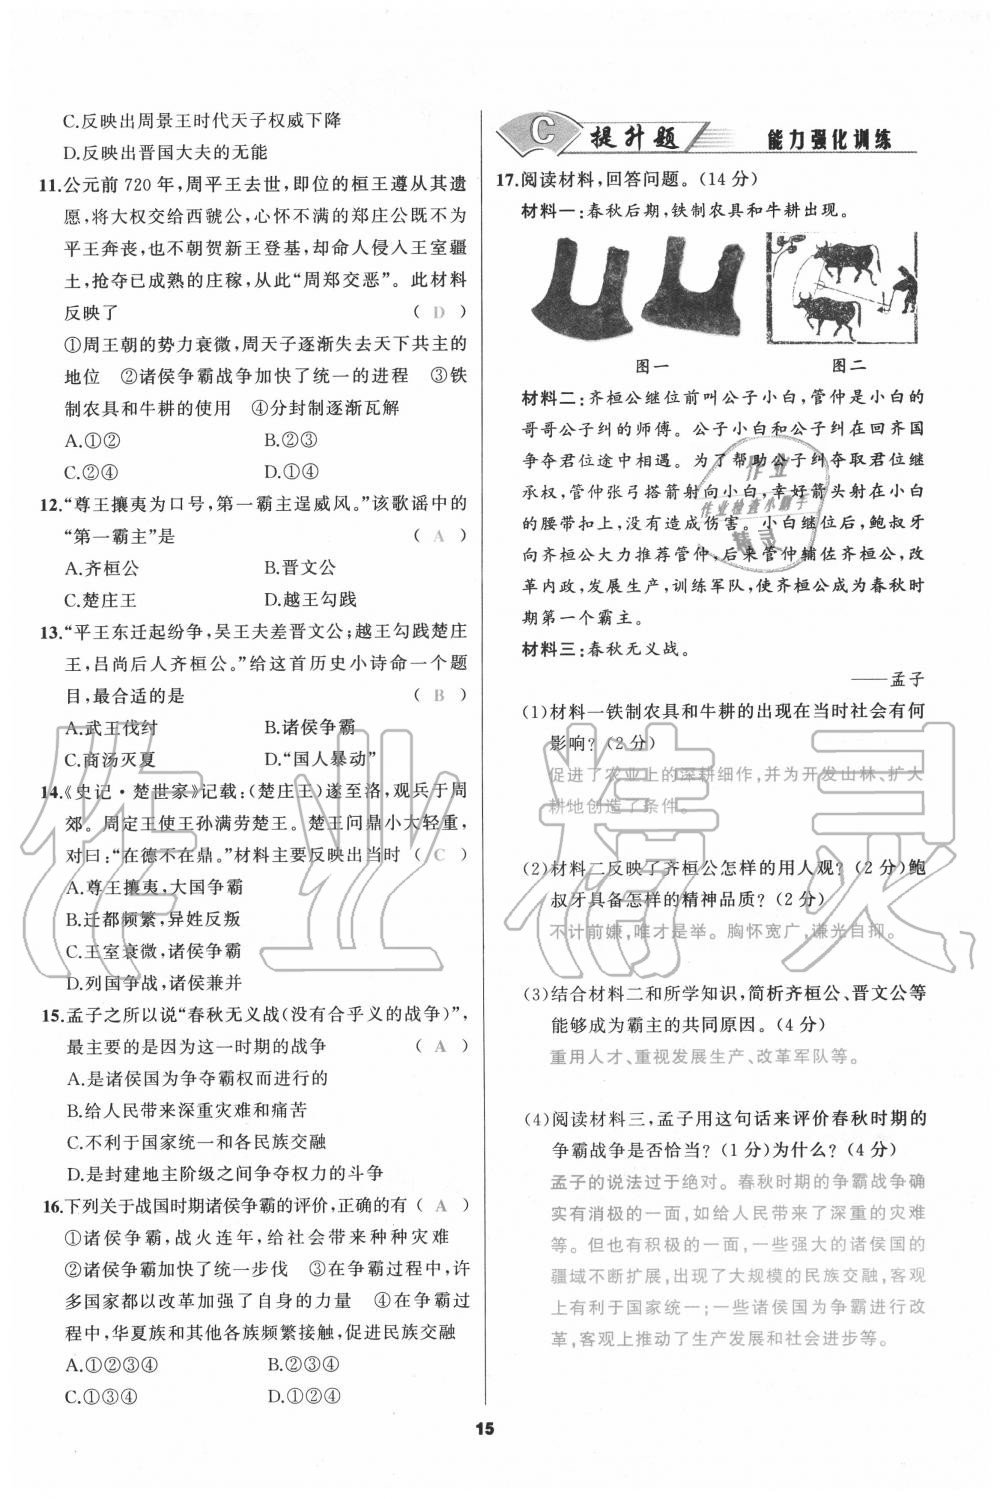 C.反映出周景王时代天子权威下降
D.反映出晋国大夫的无能
11.公元前 720 年,周平王去世,即位的桓王遵从其遗
愿,将大权交给西虢公,心怀不满的郑庄公既不为
平王奔丧,也不朝贺新王登基,却命人侵犯王室疆
土,抢夺已成熟的庄稼,从此“周郑交恶”。此材料
反映了 ( D )
①周王朝的势力衰微,周天子逐渐失去天下共主的
地位 ②诸侯争霸战争加快了统一的进程 ③铁
制农具和牛耕的使用 ④分封制逐渐瓦解
A.①② B.②③
C.②④ D.①④
12.“尊王攘夷为口号,第一霸主逞威风。”该歌谣中的
“第一霸主”是 ( A )
A.齐桓公 B.晋文公
C.楚庄王 D.越王勾践
13.“平王东迁起纷争,吴王夫差晋文公;越王勾践楚庄
王,吕尚后人齐桓公。”给这首历史小诗命一个题
目,最合适的是 ( B )
A.武王伐纣 B.诸侯争霸
C.商汤灭夏 D.“国人暴动”
14.《史记·楚世家》记载:(楚庄王)遂至洛,观兵于周
郊。周定王使王孙满劳楚王。楚王问鼎小大轻重,
对曰:“在德不在鼎。”材料主要反映出当时 ( C )
A.尊王攘夷,大国争霸
B.迁都频繁,异姓反叛
C.王室衰微,诸侯争霸
D.列国争战,诸侯兼并
15.孟子之所以说“春秋无义战(没有合乎义的战争)”,
最主要的是因为这一时期的战争 ( A )
A.是诸侯国为争夺霸权而进行的
B.给人民带来深重灾难和痛苦
C.不利于国家统一和各民族交融
D.是封建地主阶级之间争夺权力的斗争
16.下列关于战国时期诸侯争霸的评价,正确的有 ( A )
①诸侯争霸,战火连年,给社会带来种种灾难
②诸侯争霸加速了统一步伐 ③在争霸过程中,许
多国家都以改革加强了自身的力量 ④在争霸过
程中,华夏族和其他各族频繁接触,促进民族交融
A.①②③④ B.②③④
C.①③④ D.①②④
C 提升题 能力强化训练
17.阅读材料,回答问题。(14 分)
材料一:春秋后期,铁制农具和牛耕出现。
图一 图二
材料二:齐桓公继位前叫公子小白,管仲是小白的
哥哥公子纠的师傅。公子小白和公子纠在回齐国
争夺君位途中相遇。为了帮助公子纠夺取君位继
承权,管仲张弓搭箭射向小白,幸好箭头射在小白
的腰带扣上,没有造成伤害。小白继位后,鲍叔牙
向齐桓公大力推荐管仲,后来管仲辅佐齐桓公,改
革内政,发展生产,训练军队,使齐桓公成为春秋时
期第一个霸主。
材料三:春秋无义战。
——孟子
(1)材料一铁制农具和牛耕的出现在当时社会有何
影响?(2 分)
促进了农业上的深耕细作,并为开发山林、扩大
耕地创造了条件。
(2)材料二反映了齐桓公怎样的用人观?(2 分)鲍
叔牙具备怎样的精神品质?(2 分)
不计前嫌,唯才是举。胸怀宽广,谦光自抑。
(3)结合材料二和所学知识,简析齐桓公、晋文公等
能够成为霸主的共同原因。(4 分)
重用人才、重视发展生产、改革军队等。
(4)阅读材料三,孟子用这句话来评价春秋时期的
争霸战争是否恰当?(1 分)为什么?(4 分)
孟子的说法过于绝对。春秋时期的争霸战争确
实有消极的一面,如给人民带来了深重的灾难
等。但也有积极的一面,一些强大的诸侯国的
疆域不断扩展,出现了大规模的民族交融,客观
上有利于国家统一;一些诸侯国为争霸进行改
革,客观上推动了生产发展和社会进步等。
15
作业精灵
作业
作业检查小助手
精灵